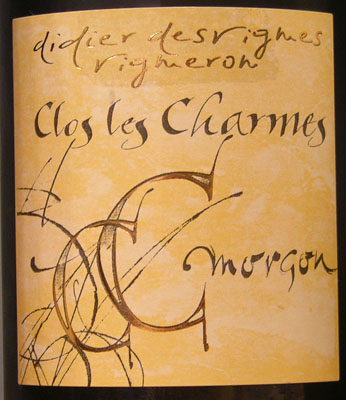 didier desvignes
vigneron
Clos les Charmes
CC
morgon